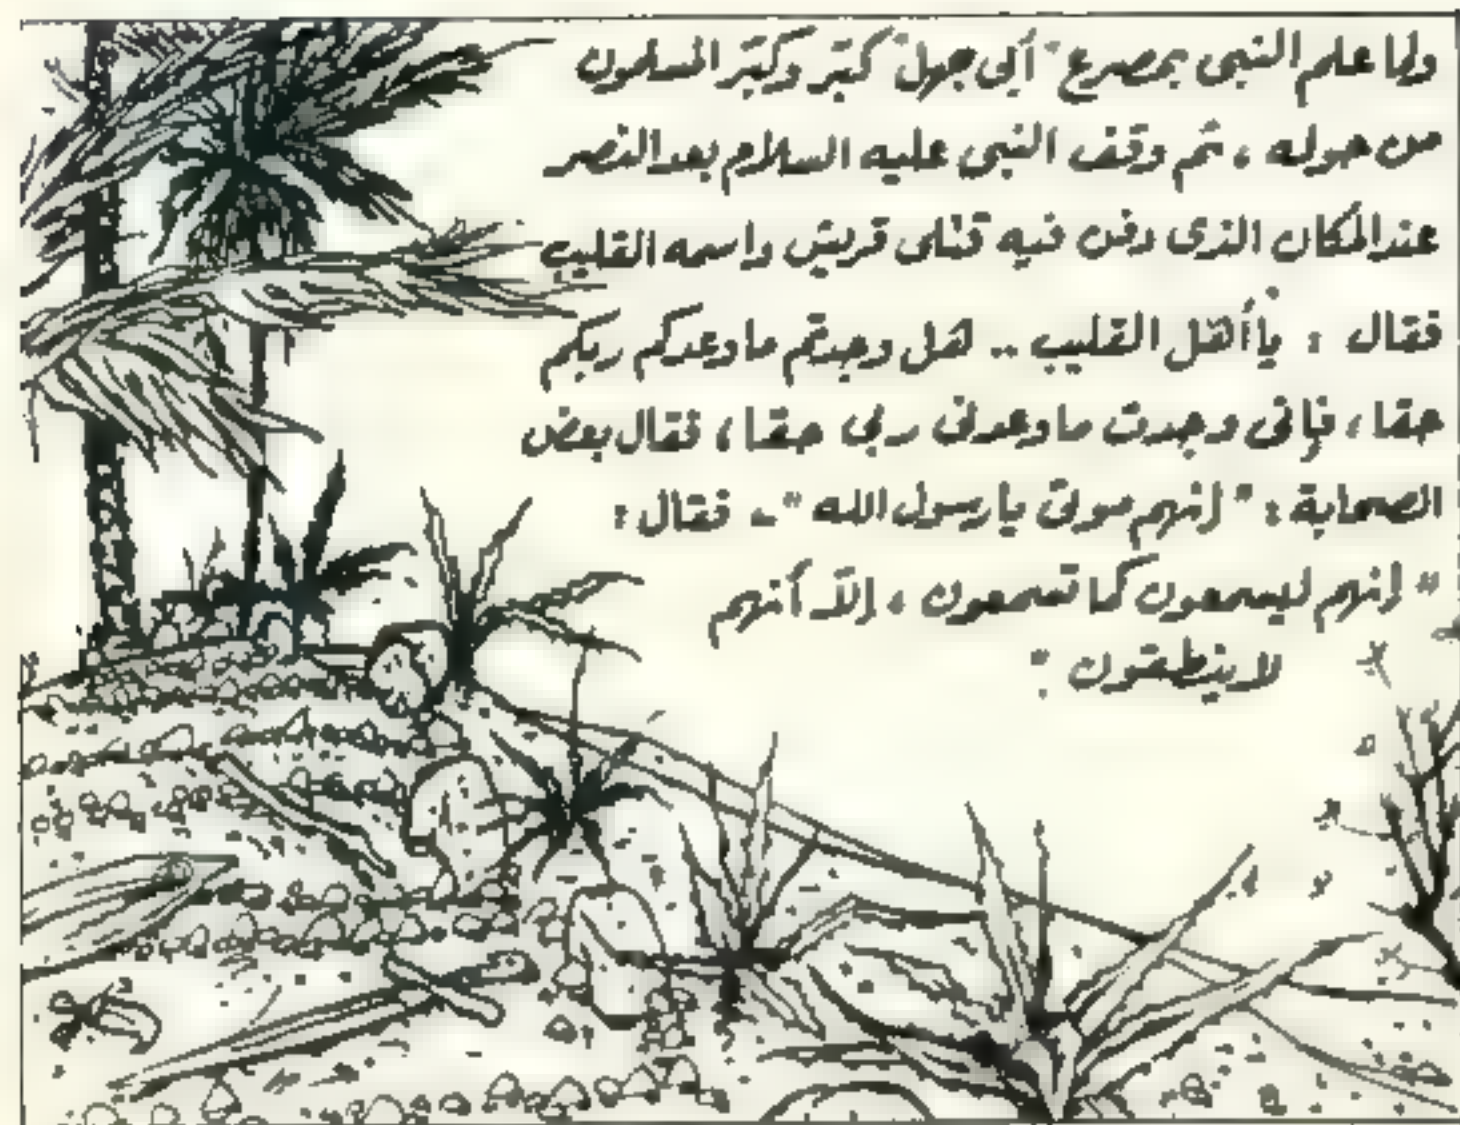 ولما علم النبى بمصرع "أبى جهل" كبّر وكبّر المسلمون
من حوله ، ثم وقف النبى عليه السلام بعد النصر
عند المكان الذى دفن فيه قتلى قريش واسمه القليب
فقال : يا أهل القليب .. هل وجدتم ما وعدكم ربكم
حقا ، فإنى وجدت ما وعدنى ربى حقا ، فقال بعض
الصحابة : " إنهم موتى يا رسول الله " ـ فقال :
" إنهم ليسمعون كما تسمعون ، إلاّ أنهم
لا ينطقون "